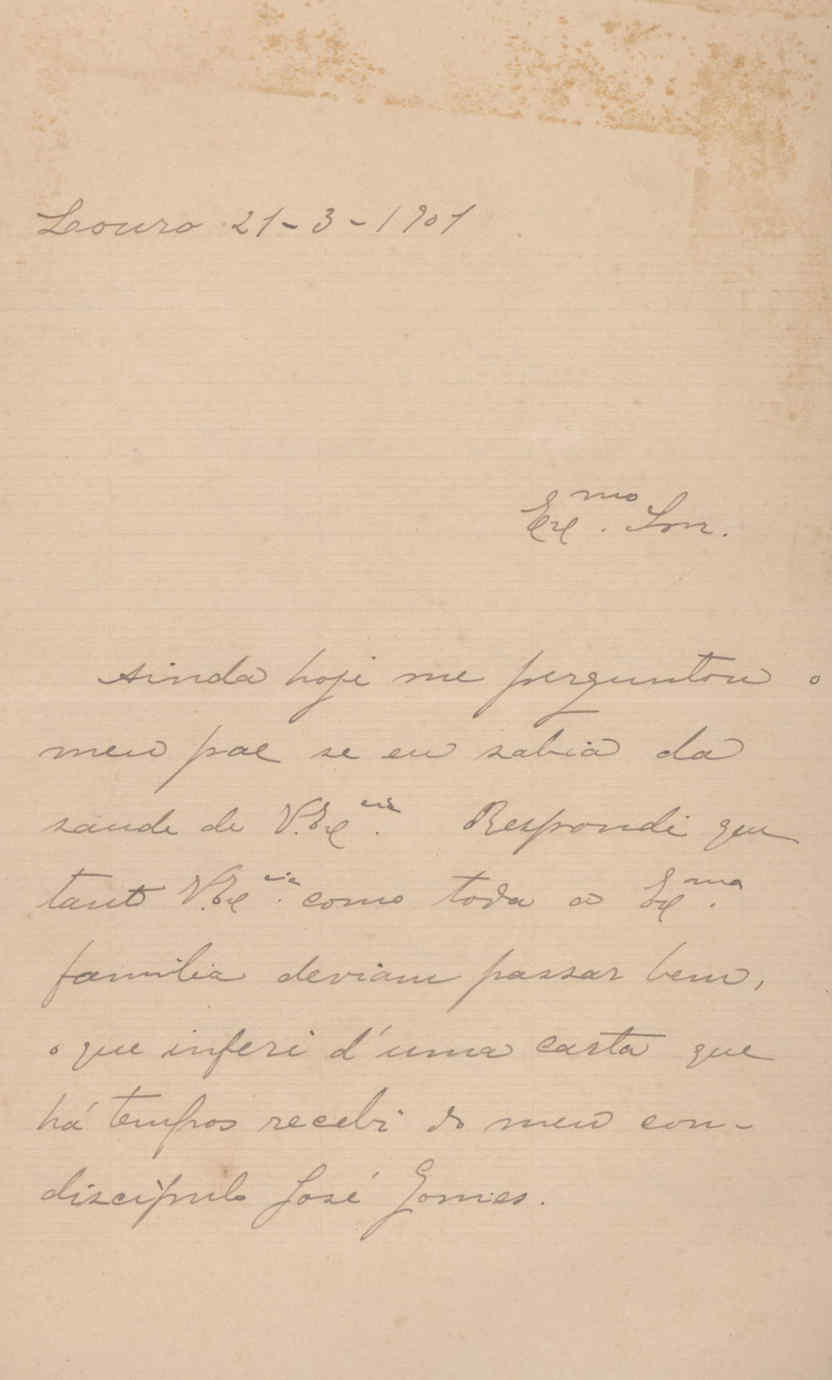 Louro 21-3-1901
Ex.mo Snr.
Ainda hoje me perguntou o
meu pae se eu sabia da
saude de V.Ex.cia. Respondi que
tanto V.Ex.cia. como toda a Ex.ma
familia deviam passar bem,
o que inferi d'uma carta que
há tempos recebi do meu con-
discípulo José Gomes.